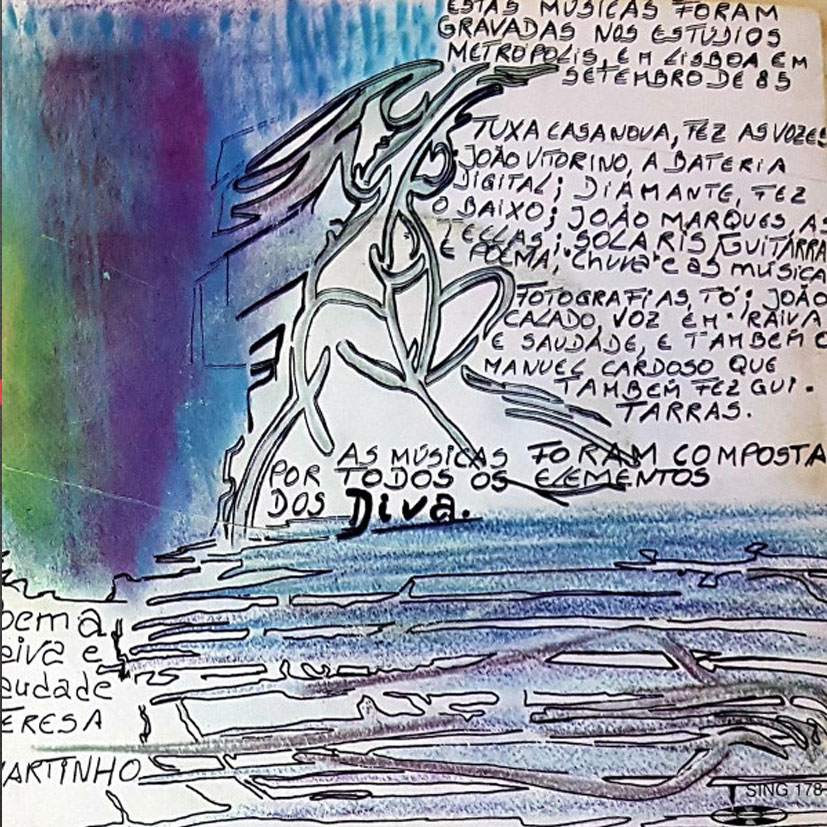 ESTAS MÚSICAS FORAM
GRAVADAS NOS ESTÚDIOS
METRÓPOLIS, EM LISBOA EM
SETEMBRO DE 85
TUXA CASANOVA, FEZ AS VOZES
JOÃO VITORINO, A BATERIA
DIGITAL; DIAMANTE, FEZ
O BAIXO; JOÃO MARQUES, AS
TECLAS; SOLARIS GUITARRA
E POEMA, "Chuva" e as música
FOTOGRAFIAS, TÓ; JOÃO
CALADO, VOZ EM "RAIVA
E SAUDADE, E TAMBÉM O
MANUEL CARDOSO QUE
TAMBÉM FEZ GUI-
TARRAS.
AS MÚSICAS FORAM COMPOSTA
POR TODOS OS ELEMENTOS
DOS Diva.
oema
aiva e
audade"
ERESA
MARTINHO
SING 178